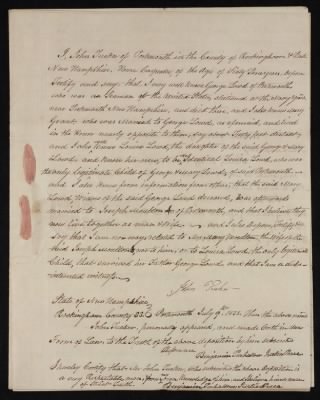 I, John Tucker of Portsmouth in the County of Rockingham & State
New Hampshire, Carpenter, of the Age of Sixty five years, depose
Testify and say, that I very well knew George Lowd of Portsmouth
who was an Seaman at the United States station at the Navy Yard
near Portsmouth New Hampshire, and died there, and I also knew Mary
Grant, who was Married to George Lowd, as aforesaid, and lived
in the House nearly opposite to them, say about Sixty feet distant,
and I also know Louisa Lowd, the daughter of the said George & Mary
Lowd, and know her now to be the identical Louisa Lowd, who was
the only legitimate Child of George & Mary Lowd, of said Portsmouth
and I also know from information from others, that the said Mary
Lowd, Widow of the said George Lowd deceased, was afterwards
married to Joseph Moulton of Portsmouth, and that I believe they
now live together as man & Wife and I also depose, Testify &
Say that I am no way related to Mary Moulton the Wife of the
said Joseph Moulton, nor to him, or to Louisa Lowd, the only legitimate
Child, that survived her Father George Lowd, and that I am a disin-
terested witness.
John Tucker
State of New Hampshire
Rockingham County SS. Portsmouth July 9th Then the above named
John Tucker, personally appeared, and made Oath in due
Form of Law, to the Truth of the above deposition by him subscribed
Before me
Benjamin Justice Peace
I hereby Certify that Mr John Tucker, who subscribed the above Deposition is
a very respectable man, from my own knowledge of him, and believe him a man
of Strict Truth. Benjamin Justice Peace